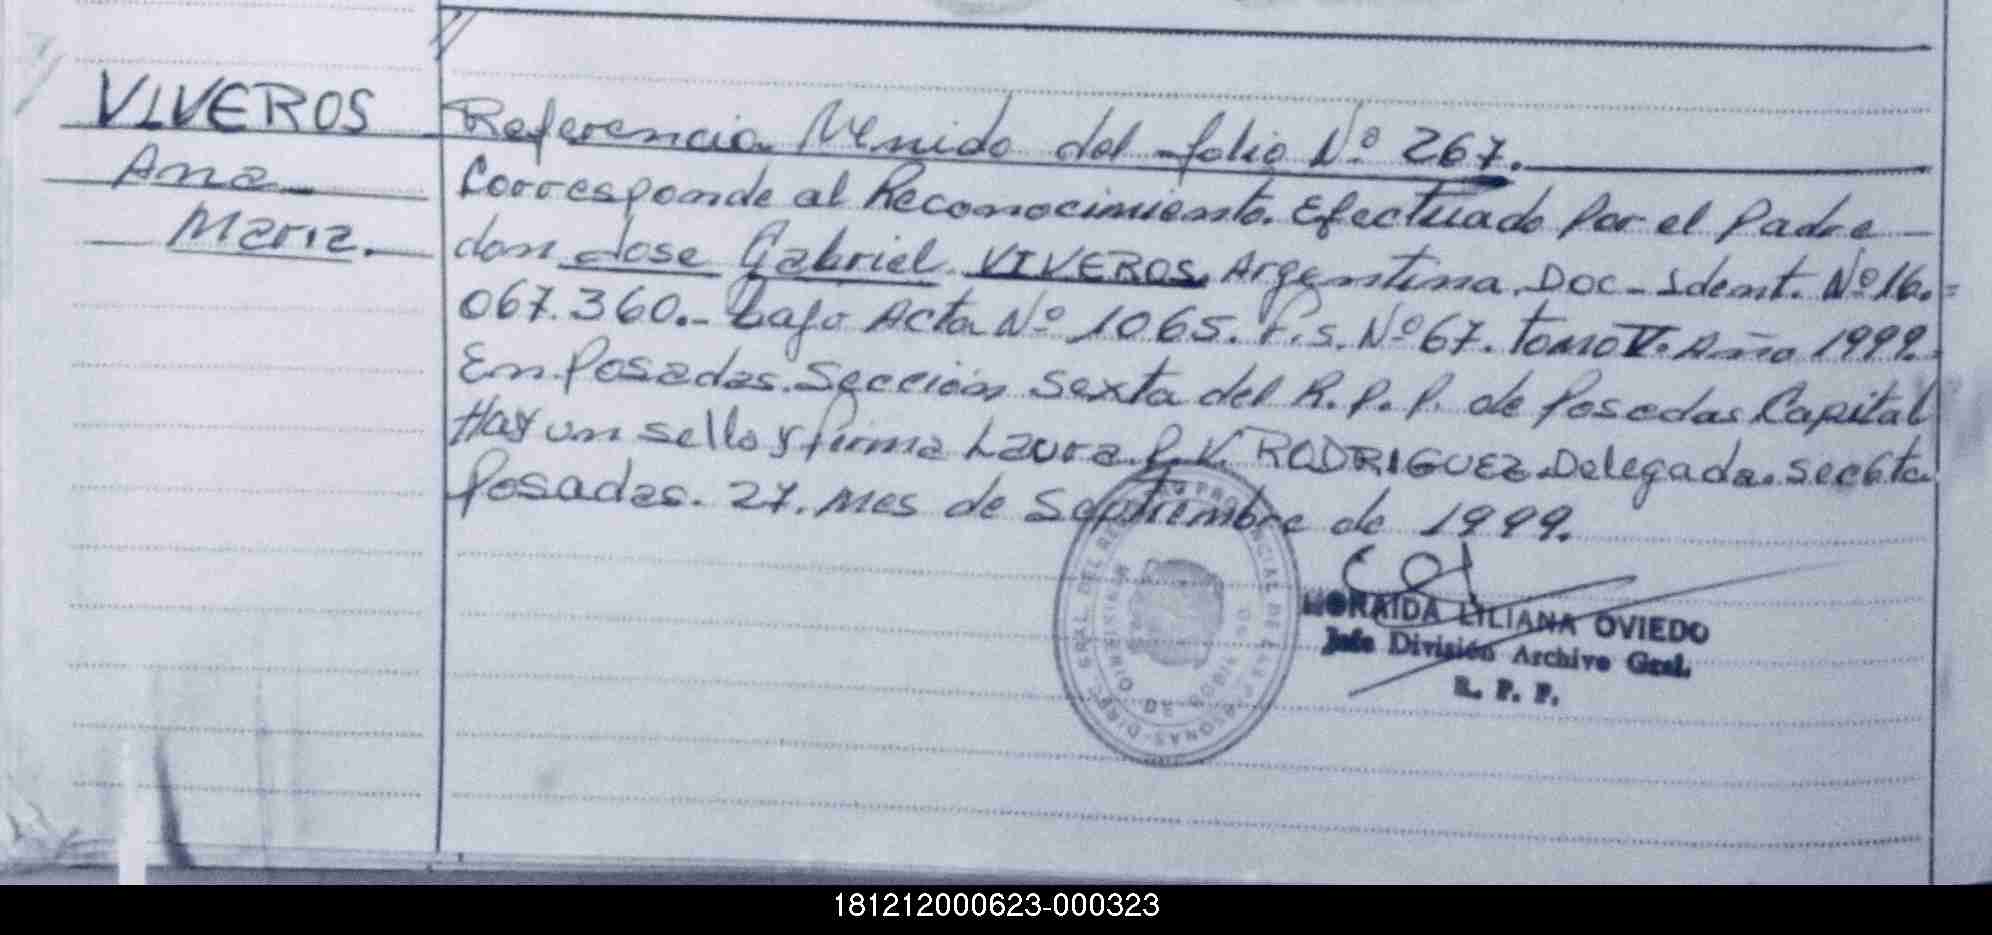 VIVEROS
Ana
Maria.
Referencia Venido del folio Nº 267.
Corresponde al Reconocimiento. Efectuado Por el Padre
don Jose Gabriel VIVEROS, Argentina, Doc-Ident. Nº 16.=
067.360.- bajo Acta Nº 1065. F.s. Nº 67. Tomo V. Año 1999.
En Posadas. Sección Sexta del R.P.P. de Posadas Capital
Hay un sello y firma Laura P. V. RODRIGUEZ Delegada. Sec 6ta.
Posadas. 27. mes de Septiembre de 1999.
DIREC. GRAL. DEL REG. PROVINCIAL DE LAS PERSONAS
MINISTERIO DE GOBIERNO
NORAIDA LILIANA OVIEDO
Jefe División Archivo Gral.
R. P. P.
181212000623-000323